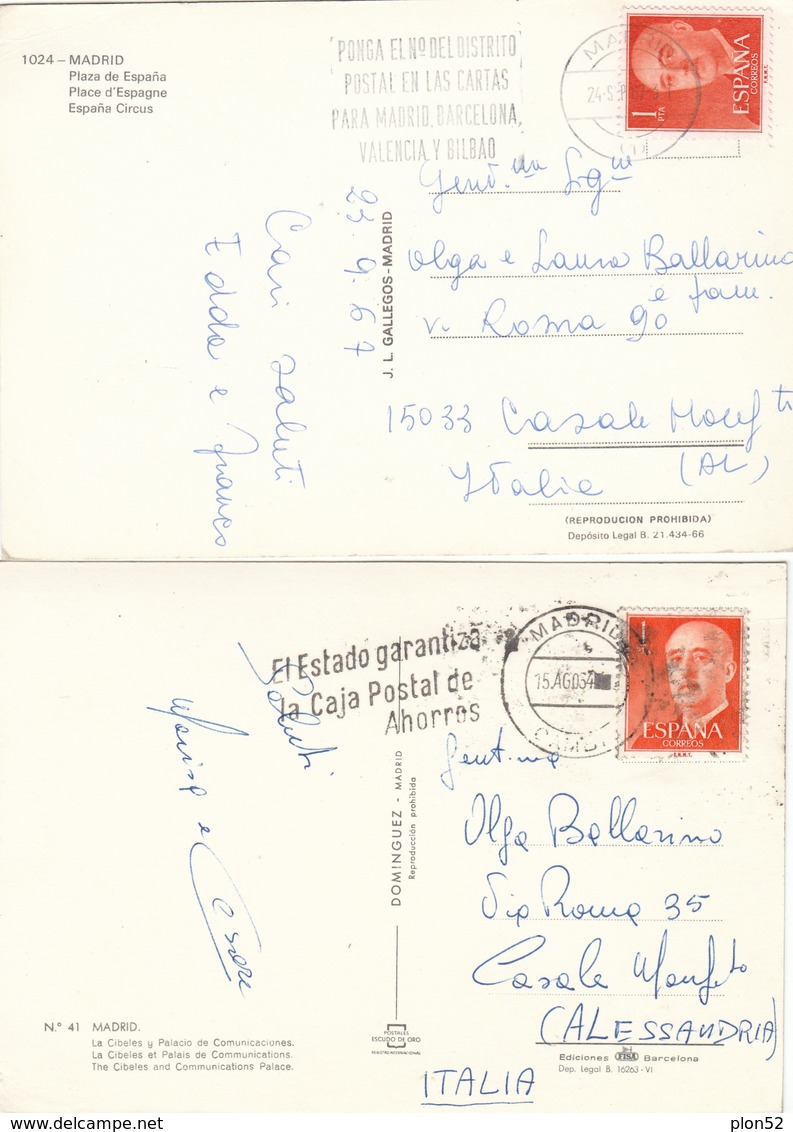 1024 – MADRID
Plaza de España
Place d'Espagne
España Circus
PONGA EL Nº DEL DISTRITO
POSTAL EN LAS CARTAS
PARA MADRID, BARCELONA,
VALENCIA Y BILBAO
MADRID
1 PTA
ESPAÑA
CORREOS
F.N.M.T.
Cari saluti
Edda e Franco
23.9.67
J. L. GALLEGOS-MADRID
Gent.me Sig.re
Olga e Laura Ballarino
e fam.
v. Roma 90
15033 Casale Monf.to
(AL)
Italia
(REPRODUCION PROHIBIDA)
Depósito Legal B. 21.434-66
El Estado garantiza
la Caja Postal de
Ahorros
MADRID
15.AGO.64
1
ESPAÑA
CORREOS
F.N.M.T.
Saluti
Marisa e Cesare
DOMINGUEZ - MADRID
Reproducción prohibida
Gent.ma
Olga Ballarino
Via Roma 35
Casale Monf.to
(ALESSANDRIA)
ITALIA
N.º 41 MADRID.
La Cibeles y Palacio de Comunicaciones.
La Cibeles et Palais de Communications.
The Cibeles and Communications Palace.
POSTALES
ESCUDO DE ORO
REGISTRO INTERNACIONAL
Ediciones FISA Barcelona
Dep. Legal B. 16263-VI
plon52